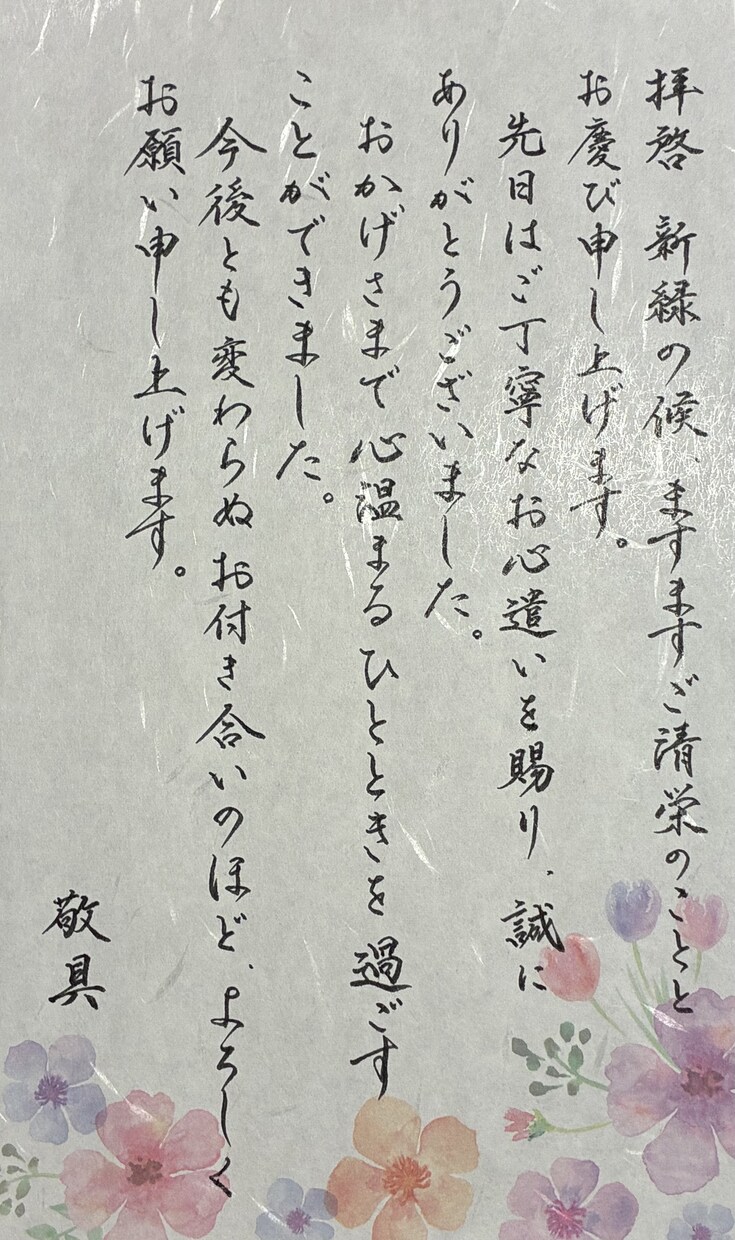 拝啓　新緑の候、ますますご清栄のことと
お慶び申し上げます。
先日はご丁寧なお心遣いを賜り、誠に
ありがとうございました。
おかげさまで心温まるひとときを過ごす
ことができました。
今後とも変わらぬお付き合いのほど、よろしく
お願い申し上げます。
敬具